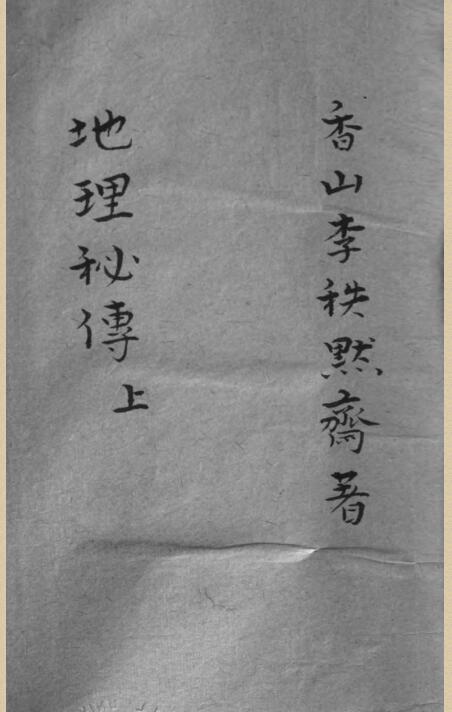 香山李秩默齋著
地理秘傳
上